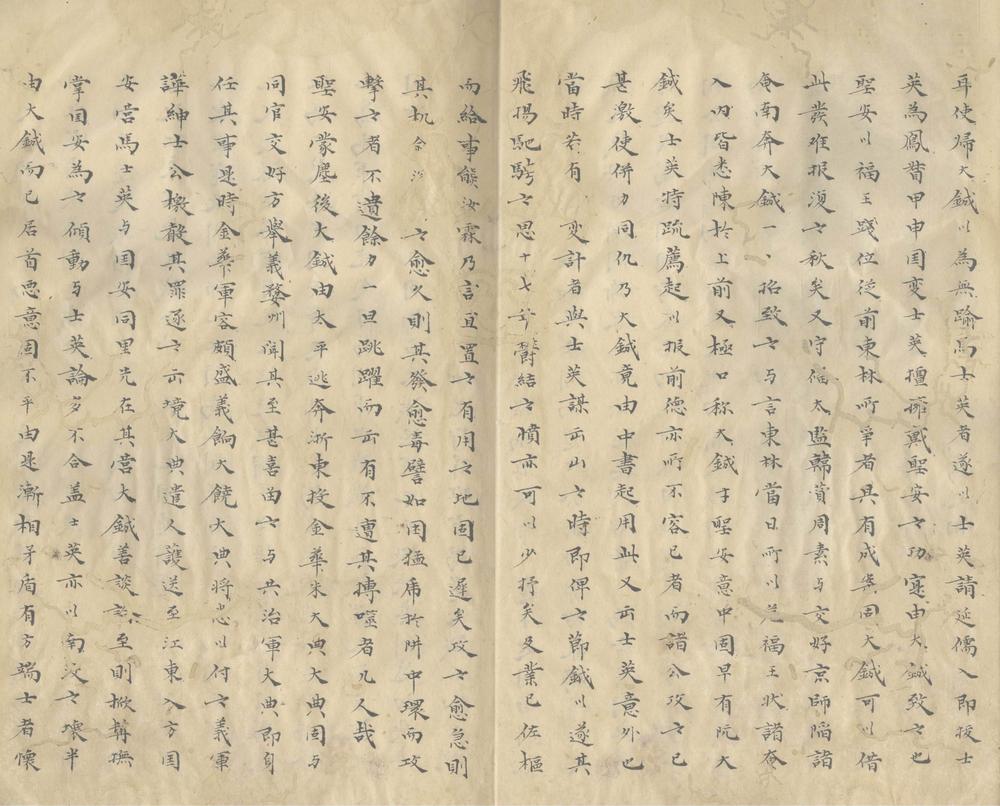 耳使歸大鋮以為無踰馬士英者遂以士英請延儒入即授士
英為鳳督甲申国变士英擅擁戴聖安之功寔由大鋮致之也
聖安以福王踐位從前東林所爭者具有成案固大鋮可以借
此發难报復之秋矣又守俻太监韓賛周素与交好京師陥諸
奄南奔大鋮一、招致之与言東林當日所以危福王状諸奄
入内皆悉陳於上前又極口称大鋮才聖安意中固早有阮大
鋮矣士英特疏薦起以报前德亦所不容已者而諸公攻之已
甚激使併力同仇乃大鋮竟由中書起用此又出士英意外也
當時若有 变計者與士英謀出山之時即俾之節鋮以遂其
飛揚馳騁之思十七年欝結之憤亦可以少抒矣及業已佐樞
而給事熊汝霖乃言宜置之有用之地固已遲矣攻之愈急則
其机 之愈久則其發愈毒譬如困猛虎於阱中環而攻
擊之者不遺餘力一旦跳躍而出有不遭其搏噬者几人哉
聖安蒙塵後大鋮由太平逃奔浙東投金華朱大典大典固与
同官交好方舉義婺州聞其至甚喜曲之与共治軍大典即自
任其事是時金華軍容頗盛義餉大饒大典將悉以付之義軍
譁紳士公檄聲其罪逐之出境大典遣人護送至江東入方国
安营馬士英与国安同里先在其营大鋮善談論至則掀髯撫
掌国安為之傾動与士英論多不合盖士英亦以南渡之壞半
由大鋮而己居首恶意固不平由是漸相矛盾有方端士者懷